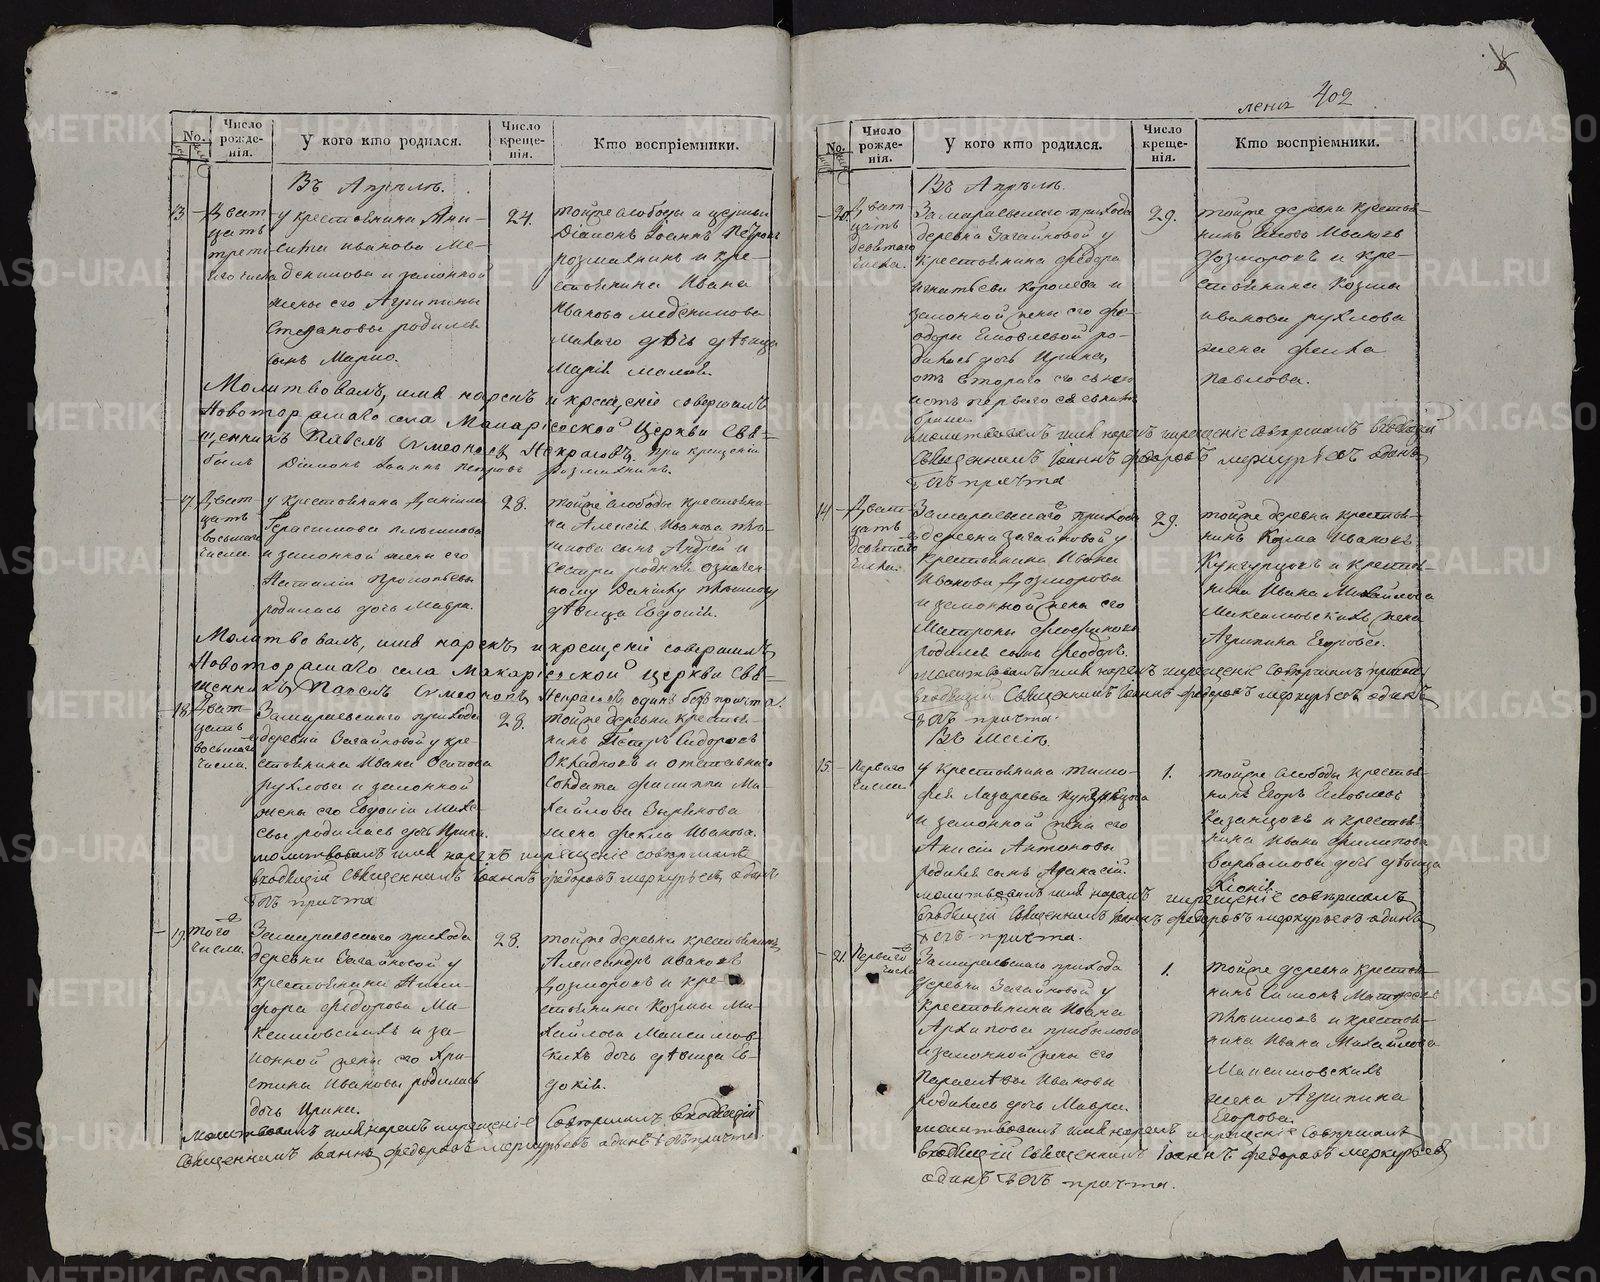 402
No.
Число рожде-
нія.
У кого кто родился.
Число креще-
нія.
Кто воспріемники.
Въ Апрѣлѣ.
13
Дват
цать
трет
яго числа
у крестьянина Ани-
Иванова Ме-
и законной
жены его Агрипины
Степановы родился
сынъ Марко.
24.
тойже слободы и церкви
Діаконъ Іоаннъ Петровъ
и кре-
стьянина Ивана
Иванова
дочь дѣвица
Марія
Молитвовалъ, имя нарекъ и крещеніе совершалъ
Новоторжскаго села Макарьевской Церкви Свя-
щенникъ Павелъ Симеоновъ Некрасовъ, при крещеніи
былъ Діаконъ Іоаннъ Петровъ
17.
Дват
цать
восьмаго
числа.
у крестьянина Даніила
Герасимова
и законной жены его
Наталіи Прокопьевы
родилась дочь Мавра.
28.
тойже слободы крестьяни-
на Алексія Иванова
сынъ Андрей и
сестра родная означен-
ному Данилу
дѣвица Евдокія.
Молитвовалъ, имя нарекъ, и крещеніе совершалъ
Новоторжскаго села Макарьевской церкви Свя-
щенникъ Павелъ Симеоновъ Некрасовъ один безъ причта.
18.
Дват
цать
восьмаго
числа.
Замараевскаго прихода
деревни Загайновой у кре-
стьянина Ивана Осипова
Рухлова и законной
жены его Евдокіи
родилась дочь Ирина.
28.
тойже деревни крестья-
нинъ Петръ Сидоровъ
и отставнаго
солдата Филиппа Ми-
хайлова Зырянова
жена Фекла Иванова.
молитвовалъ имя нарекъ и крещеніе совершалъ
Священникъ Іоаннъ Федоровъ Меркурьевъ одинъ
безъ причта
19.
того
числа.
Замараевскаго прихода
деревни Загайновой у
крестьянина Ники-
фора Федорова Ма-
ксимовскихъ и за-
конной жены его Хри-
стины Ивановы родилась
дочь Ирина.
28.
тойже деревни крестьянинъ
Александръ Ивановъ
Дозморовъ и кре-
стьянина Козмы Ми-
хайлова Максимов-
скихъ дочь дѣвица Ев-
докія.
молитвовалъ имя нарекъ и крещеніе совершалъ
Священникъ Іоаннъ Федоровъ Меркурьевъ одинъ безъ причта.
No.
Число рожде-
нія.
У кого кто родился.
Число креще-
нія.
Кто воспріемники.
Въ Апрѣлѣ.
20.
Дват
цать
девятаго
числа.
Замараевскаго прихода
деревни Загайновой у
крестьянина Федора
Игнатьева Королева и
законной жены его Фе-
одоры Яковлевой ро-
дилась дочь Ирина,
отъ втораго его
29.
тойже деревни крестья-
нинъ Яковъ Ивановъ
Дозморовъ и кре-
стьянина Козмы
Иванова Рухлова
жена Фекла
Павлова.
молитвовалъ имя нарекъ и крещеніе совершалъ
Священникъ Іоаннъ Федоровъ Меркурьевъ одинъ
безъ причта
14
Дват
цать
девятаго
числа.
Замараевскаго прихода
деревни Загайновой у
крестьянина Ивана
Иванова Дозморова
и законной жены его
Матроны
родился сынъ Феодоръ.
29.
тойже деревни крестья-
нинъ Козма Ивановъ
Кунгурцовъ и крестья-
нина Ивана Михайлова
Максимовскихъ жена
Агрипина Егорова.
молитвовалъ имя нарекъ и крещеніе совершалъ
Священникъ Іоаннъ Федоровъ Меркурьевъ одинъ
безъ причта.
Въ Маіѣ.
15
Перваго
числа.
у крестьянина Тимо-
фея Лазарева Кунгурцова
и законной жены его
Анисіи Антоновы
родился сынъ Афанасій.
1.
тойже слободы крестья-
нинъ Егоръ Яковлевъ
Казанцовъ и крестья-
нина Ивана Филипова
Варламова дочь дѣвица
молитвовалъ имя нарекъ и крещеніе совершалъ
Священникъ Іоаннъ Федоровъ Меркурьевъ одинъ
безъ причта.
21.
Перваго
числа
Замараевскаго прихода
деревни Загайновой у
крестьянина Ивана
Архипова Прибылова
и законной жены его
Параскевы Ивановы
родилась дочь Мавра.
1.
тойже деревни крестья-
нинъ Симонъ
и крестья-
нина Ивана Михайлова
Максимовскихъ
жена Агрипина
Егорова.
молитвовалъ имя нарекъ и крещеніе совершалъ
Священникъ Іоаннъ Федоровъ Меркурьевъ
одинъ безъ причта.
METRIKI.GASO-URAL.RU